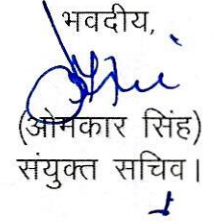 भवदीय,
(ओमकार सिंह)
संयुक्त सचिव।